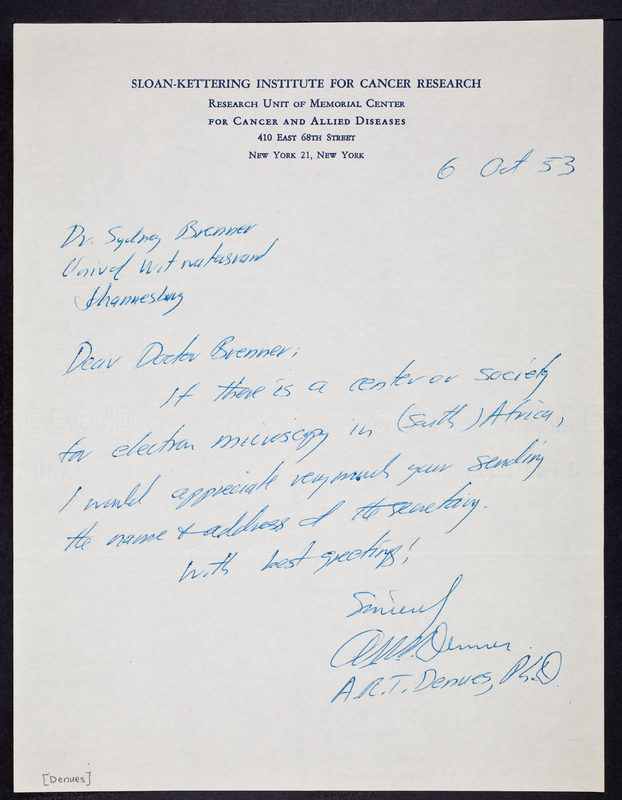 SLOAN-KETTERING INSTITUTE FOR CANCER RESEARCH
RESEARCH UNIT OF MEMORIAL CENTER
FOR CANCER AND ALLIED DISEASES
410 EAST 68TH STREET
NEW YORK 21, NEW YORK
6 Oct 53
Dr. Sydney Brenner
Univ of Witwatersrand
Johannesburg
Dear Doctor Brenner:
If there is a center or society
for electron microscopy in (South) Africa,
I would appreciate very much your sending
the name & address of the secretary.
With best greetings!
Sincerely
A.R.T. Denues
A.R.T. Denues, Ph.D.
[Denues]